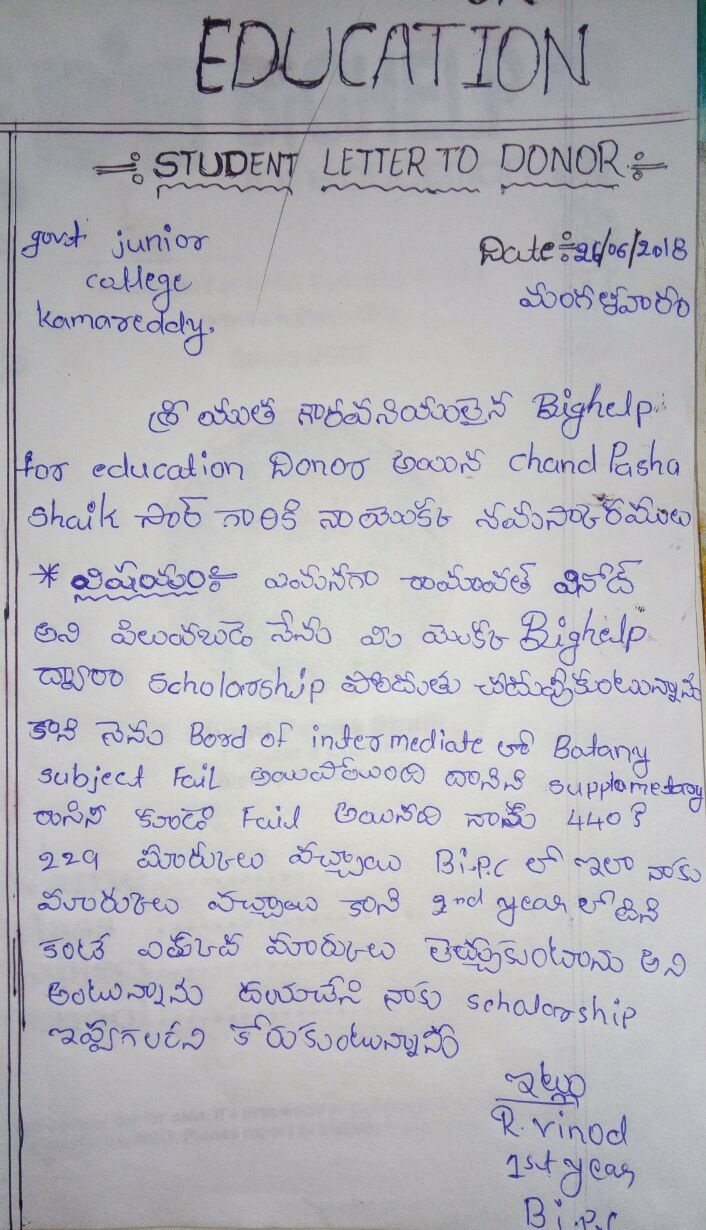 EDUCATION
STUDENT LETTER TO DONOR
govt junior
college
Kamareddy,
Date:26/06/2018
మంగళవారం
శ్రీ యుత గౌరవనియులైన Bighelp
for education Donor అయిన chand Pasha
Shaik సార్ గారికి నాయొక్క నమస్కారములు
* విషయం:- ఏమనగా రామావత్ వినోద్
అని పిలువబడే నేను మీ యొక్క Bighelp
ద్వారా Scholarship పొందుతు చదువుకుంటున్నాను
కాని నేను Bord of intermediate లో Botany
subject Fail అయిపోయింది దానిని supplametary
రాసిన కూడా Fail అయినది నాకు 440 కి
229 మార్కులు వచ్చాయి Bi.P.C లో ఇలా నాకు
మార్కులు వచ్చాయి కాని 2nd year లో దీని
కంటే ఎక్కువ మార్కులు తెచ్చుకుంటాను అని
అంటున్నాను దయచేసి నాకు scholarship
ఇవ్వగలరని కోరుకుంటున్నాను
ఇట్లు
R. vinod
1st year
Bi.P.C